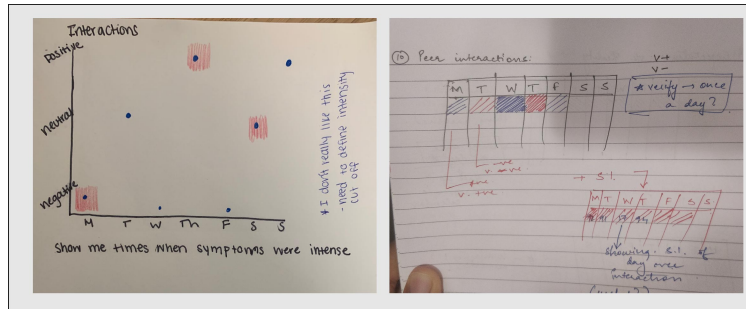 Interactions
positive
neutral
negative
M T W Th F S S
Show me times when symptoms were intense
* I don't really like this
- need to define intensity
cut off
(10) Peer interactions:
v+
v-
* verify → once
a day?
M T W T F S S
-ve
v. -ve
+ve
v. +ve
+ S.I.
M T W T F S S
showing S.I. of
day over
interaction